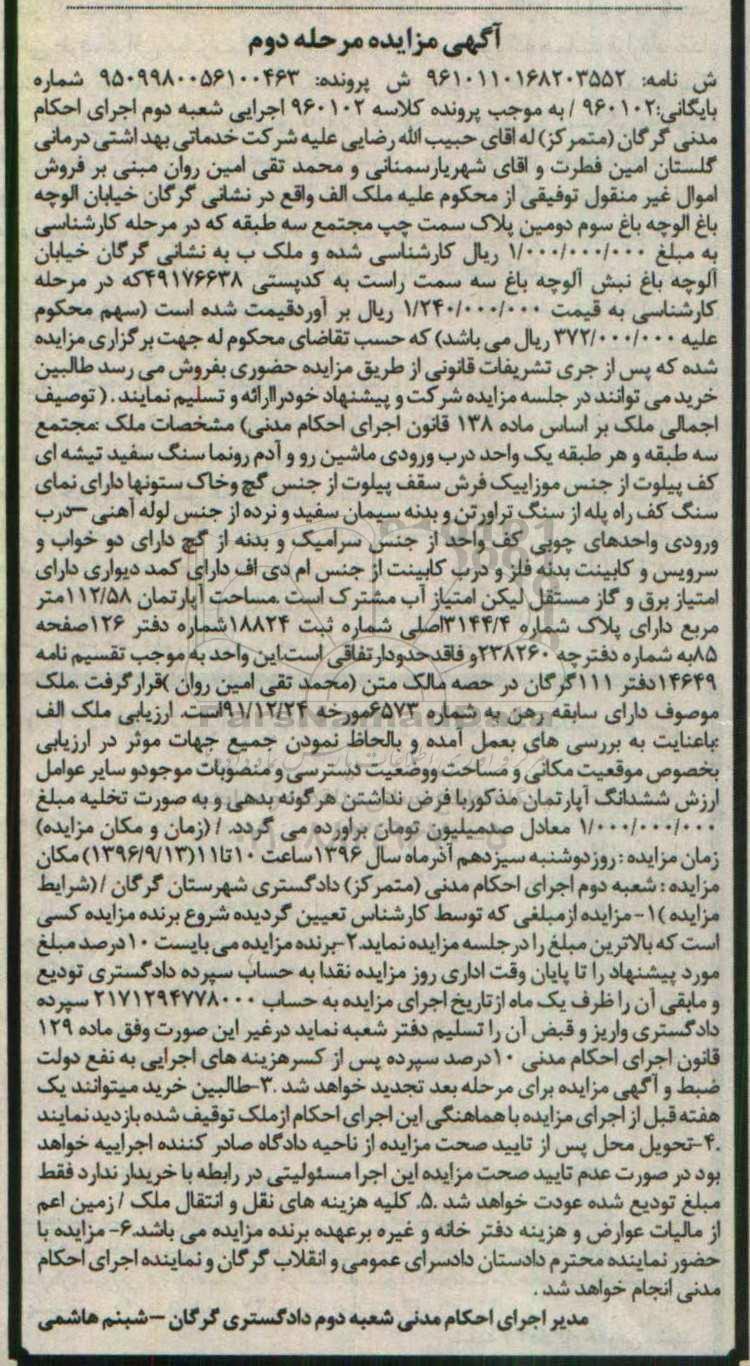 آگهی مزایده مرحله دوم
ش نامه: ۹۶۱۰۱۱۰۱۶۸۲۰۳۵۵۲ ش پرونده: ۹۵۰۹۹۸۰۰۵۶۱۰۰۴۶۳ شماره
بایگانی:۹۶۰۱۰۲ / به موجب پرونده کلاسه ۹۶۰۱۰۲ اجرایی شعبه دوم اجرای احکام
مدنی گرگان (متمرکز) له اقای حبیب الله رضایی علیه شرکت خدماتی بهداشتی درمانی
گلستان امین فطرت و اقای شهریارسمنانی و محمد تقی امین روان مبنی بر فروش
اموال غیر منقول توقیفی از محکوم علیه ملک الف واقع در نشانی گرگان خیابان الوچه
باغ الوچه باغ سوم دومین پلاک سمت چپ مجتمع سه طبقه که در مرحله کارشناسی
به مبلغ ۱/۰۰۰/۰۰۰/۰۰۰ ریال کارشناسی شده و ملک ب به نشانی گرگان خیابان
آلوچه باغ نبش آلوچه باغ سه سمت راست به کدپستی ۴۹۱۷۶۶۳۸که در مرحله
کارشناسی به قیمت ۱/۲۴۰/۰۰۰/۰۰۰ ریال بر آوردقیمت شده است (سهم محکوم
علیه ۳۷۲/۰۰۰/۰۰۰ ریال می باشد) که حسب تقاضای محکوم له جهت برگزاری مزایده
شده که پس از جری تشریفات قانونی از طریق مزایده حضوری بفروش می رسد طالبین
خرید می توانند در جلسه مزایده شرکت و پیشنهاد خودراارائه و تسلیم نمایند . ( توصیف
اجمالی ملک بر اساس ماده ۱۳۸ قانون اجرای احکام مدنی) مشخصات ملک :مجتمع
سه طبقه و هر طبقه یک واحد درب ورودی ماشین رو و آدم رونما سنگ سفید تیشه ای
کف پیلوت از جنس موزاییک فرش سقف پیلوت از جنس گچ وخاک ستونها دارای نمای
سنگ کف راه پله از سنگ تراورتن و بدنه سیمان سفید و نرده از جنس لوله آهنی –درب
ورودی واحدهای چوبی کف واحد از جنس سرامیک و بدنه از گچ دارای دو خواب و
سرویس و کابینت بدنه فلز و درب کابینت از جنس ام دی اف دارای کمد دیواری دارای
امتیاز برق و گاز مستقل لیکن امتیاز آب مشترک است .مساحت آپارتمان ۱۱۲/۵۸متر
مربع دارای پلاک شماره ۳۱۴۴/۴اصلی شماره ثبت ۱۸۸۲۴شماره دفتر ۱۲۶صفحه
۸۵به شماره دفترچه ۲۳۸۲۶۰و فاقدحدودارتفاقی است.این واحد به موجب تقسیم نامه
۱۴۶۴۹دفتر ۱۱۱گرگان در حصه مالک متن (محمد تقی امین روان )قرارگرفت .ملک
موصوف دارای سابقه رهن به شماره ۶۵۷۳مورخه ۹۱/۱۲/۲۴است. ارزیابی ملک الف
:باعنایت به بررسی های بعمل آمده و بالحاظ نمودن جمیع جهات موثر در ارزیابی
بخصوص موقعیت مکانی و مساحت ووضعیت دسترسی و منصوبات موجودو سایر عوامل
ارزش ششدانگ آپارتمان مذکوربا فرض نداشتن هرگونه بدهی و به صورت تخلیه مبلغ
۱/۰۰۰/۰۰۰/۰۰۰ معادل صدمیلیون تومان براورده می گردد. / (زمان و مکان مزایده)
زمان مزایده : روزدوشنبه سیزدهم آذرماه سال ۱۳۹۶ساعت ۱۰تا۱۱(۱۳۹۶/۹/۱۳) مکان
مزایده : شعبه دوم اجرای احکام مدنی (متمرکز) دادگستری شهرستان گرگان /(شرایط
مزایده )۱- مزایده ازمبلغی که توسط کارشناس تعیین گردیده شروع برنده مزایده کسی
است که بالاترین مبلغ را درجلسه مزایده نماید.۲-برنده مزایده می بایست ۱۰درصد مبلغ
مورد پیشنهاد را تا پایان وقت اداری روز مزایده نقدا به حساب سپرده دادگستری تودیع
و مابقی آن را ظرف یک ماه ازتاریخ اجرای مزایده به حساب ۲۱۷۱۲۹۴۷۷۸۰۰۰ سپرده
دادگستری واریز و قبض آن را تسلیم دفتر شعبه نماید درغیر این صورت وفق ماده ۱۲۹
قانون اجرای احکام مدنی ۱۰درصد سپرده پس از کسرهزینه های اجرایی به نفع دولت
ضبط و آگهی مزایده برای مرحله بعد تجدید خواهد شد .۳-طالبین خرید میتوانند یک
هفته قبل از اجرای مزایده با هماهنگی این اجرای احکام ازملک توقیف شده بازدید نمایند
.۴-تحویل محل پس از تایید صحت مزایده از ناحیه دادگاه صادر کننده اجراییه خواهد
بود در صورت عدم تایید صحت مزایده این اجرا مسئولیتی در رابطه با خریدار ندارد فقط
مبلغ تودیع شده عودت خواهد شد .۵. کلیه هزینه های نقل و انتقال ملک / زمین اعم
از مالیات عوارض و هزینه دفتر خانه و غیره برعهده برنده مزایده می باشد.۶- مزایده با
حضور نماینده محترم دادستان دادسرای عمومی و انقلاب گرگان و نماینده اجرای احکام
مدنی انجام خواهد شد .
مدیر اجرای احکام مدنی شعبه دوم دادگستری گرگان –شبنم هاشمی